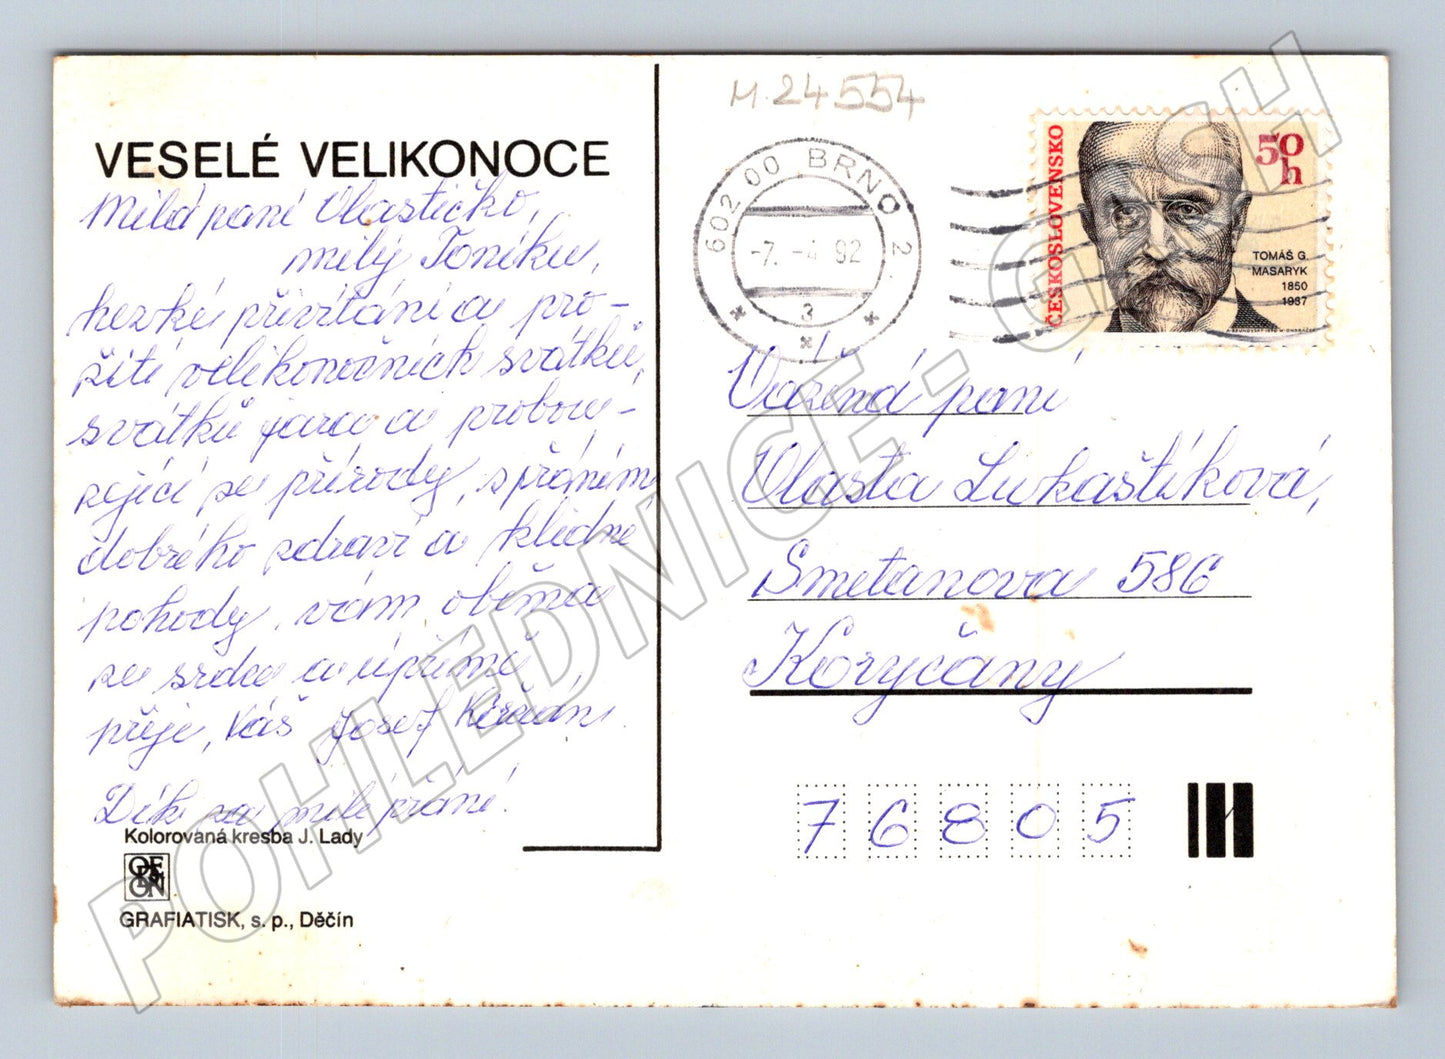 VESELÉ VELIKONOCE
Milá paní Vlastičko,
milý Toníku,
hezké přivítání a pro-
žití velikonočních svátků,
svátků jara a probou-
zející se přírody, s přáním
dobrého zdraví a klidné
pohody, vám oběma
ze srdce a upřímně
přeje, Váš Josef
Díky za milé přání.
Kolorovaná kresba J. Lady
GRAFIATISK, s. p., Děčín
M 24554
602 00 BRNO 2
-7.-4.92
3
ČESKOSLOVENSKO
50
h
TOMÁŠ G.
MASARYK
1850
1937
Vážená paní
Vlasta Lukaštíková,
Smetanova 586
Koryčany
76805
POHLEDNICE - GASH